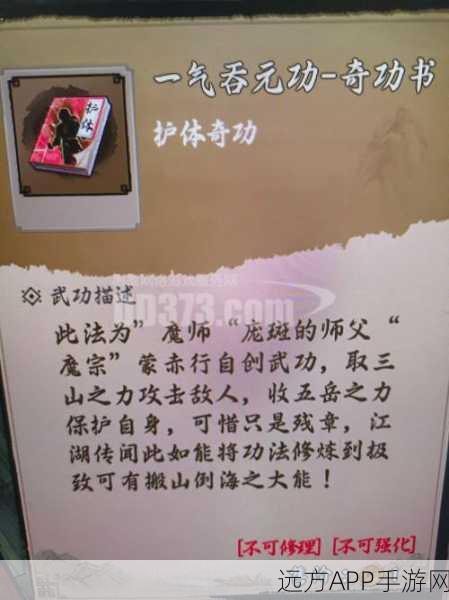 一气吞元功-奇功书
护体
护体奇功
武功描述
DD373.com
此法为”魔师“庞斑的师父“
魔宗”蒙赤行自创武功，取三
山之力攻击敌人，收五岳之力
保护自身，可惜只是残章，江
湖传闻此如能将功法修炼到极
致可有搬山倒海之大能！
[不可修理] [不可强化]
远方APP手游网